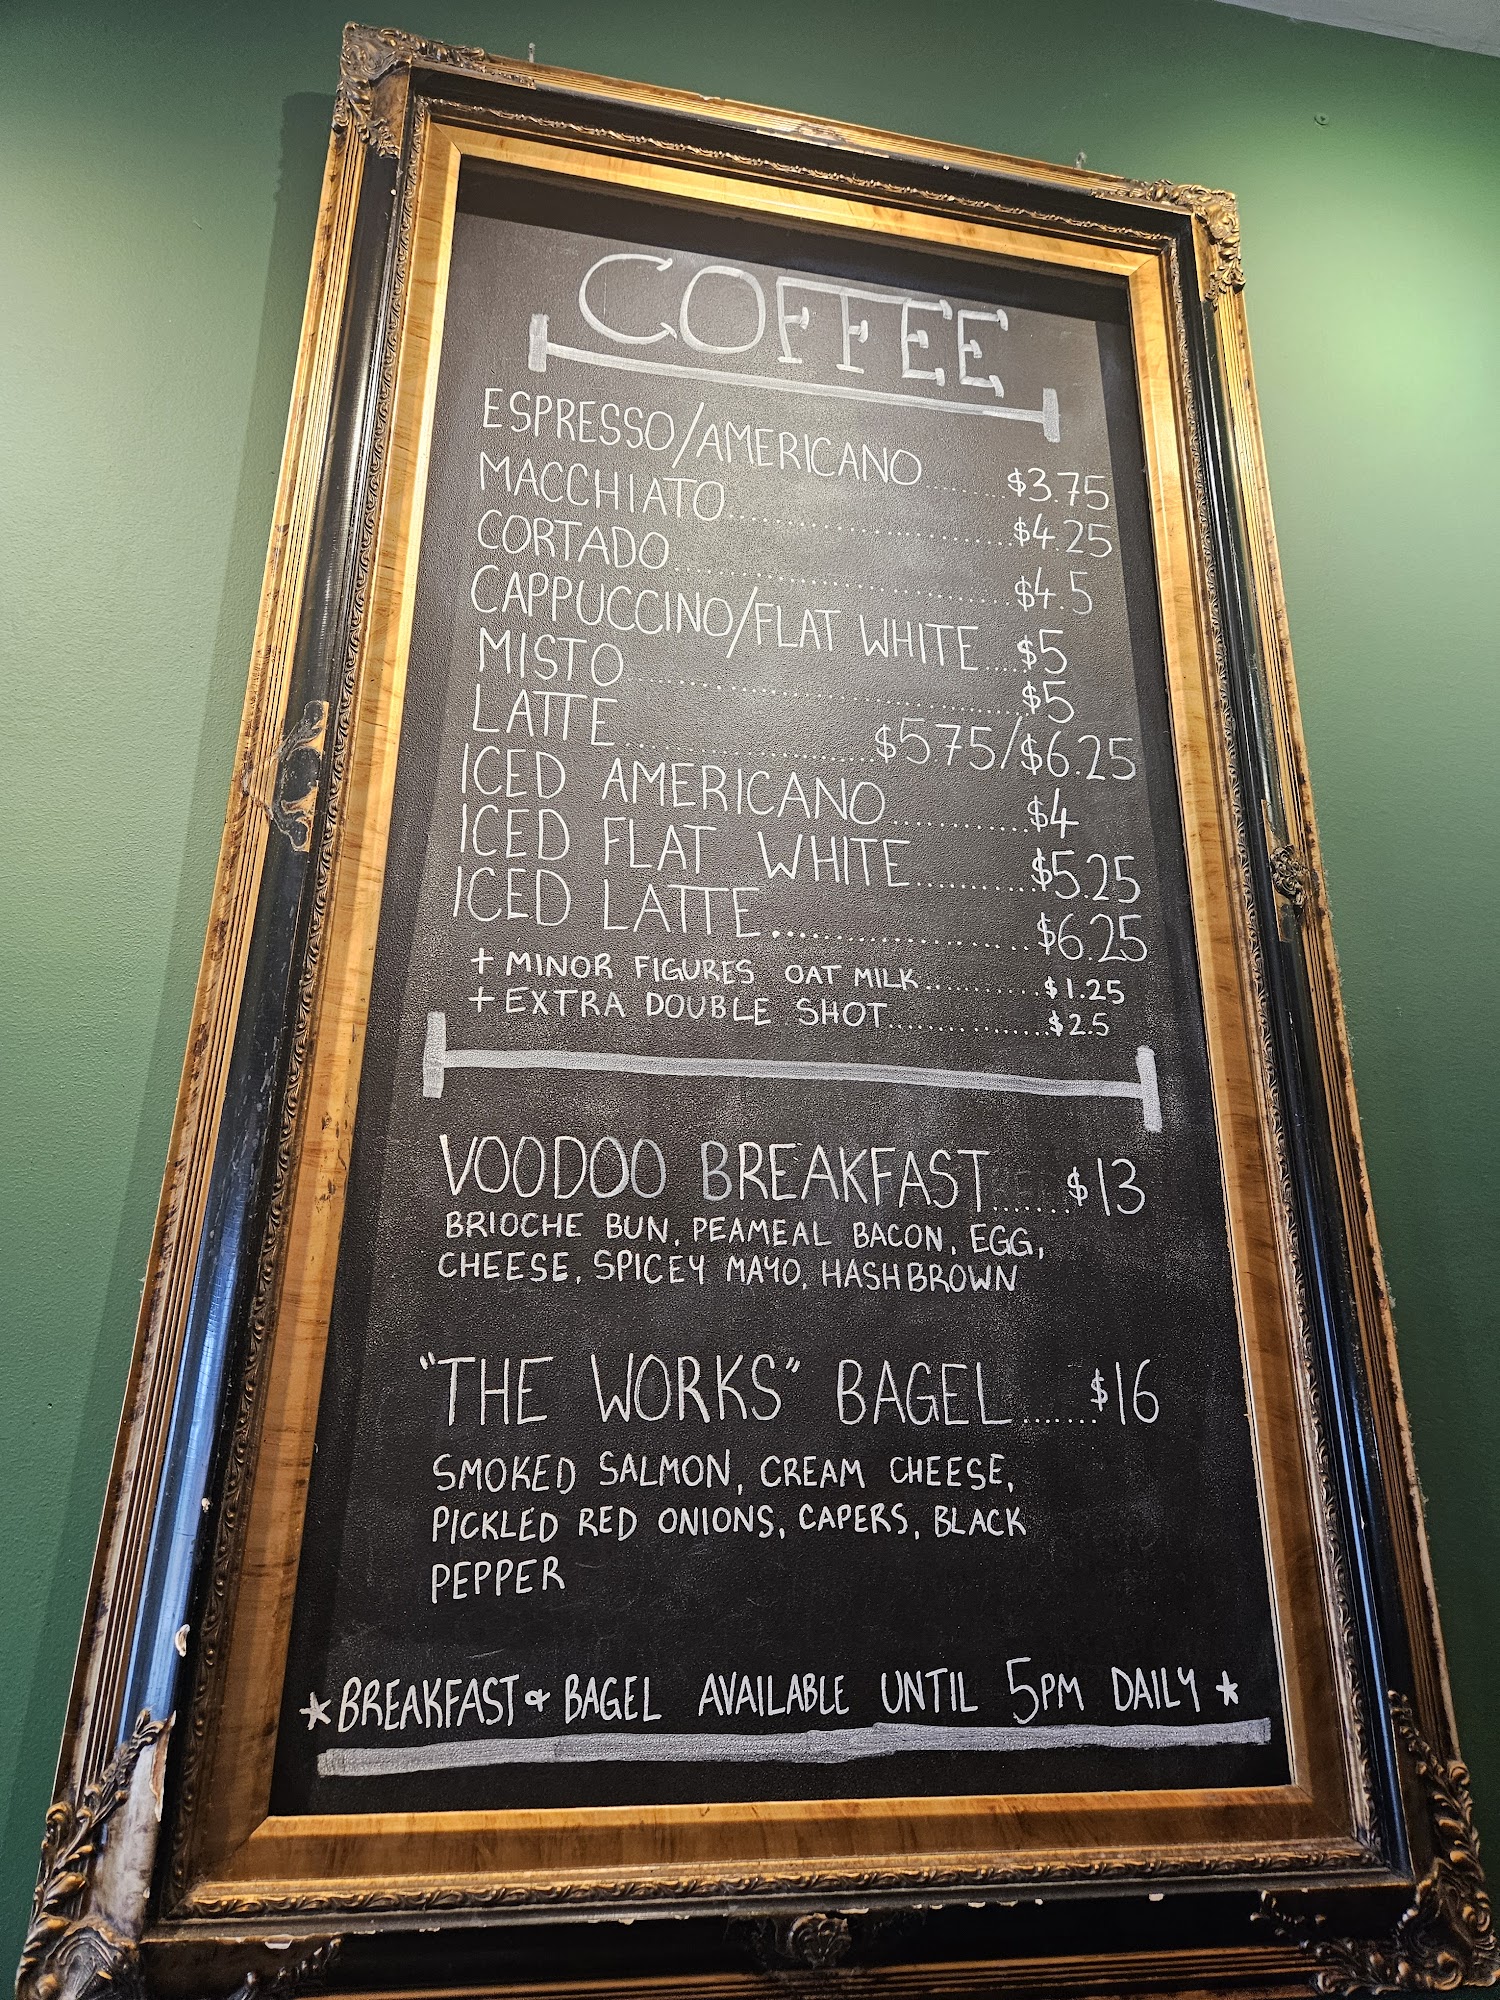 COFFEE
ESPRESSO/AMERICANO........$3.75
MACCHIATO........................$4.25
CORTADO..............................$4.5
CAPPUCCINO/FLAT WHITE....$5
MISTO...................................$5
LATTE......................$575/$6.25
ICED AMERICANO.............$4
ICED FLAT WHITE...........$5.25
ICED LATTE........................$6.25
+ MINOR FIGURES OAT MILK............$1.25
+ EXTRA DOUBLE SHOT................$2.5
VOODOO BREAKFAST........$13
BRIOCHE BUN, PEAMEAL BACON, EGG,
CHEESE, SPICEY MAYO, HASHBROWN
"THE WORKS" BAGEL.......$16
SMOKED SALMON, CREAM CHEESE,
PICKLED RED ONIONS, CAPERS, BLACK
PEPPER
*BREAKFAST & BAGEL AVAILABLE UNTIL 5PM DAILY*